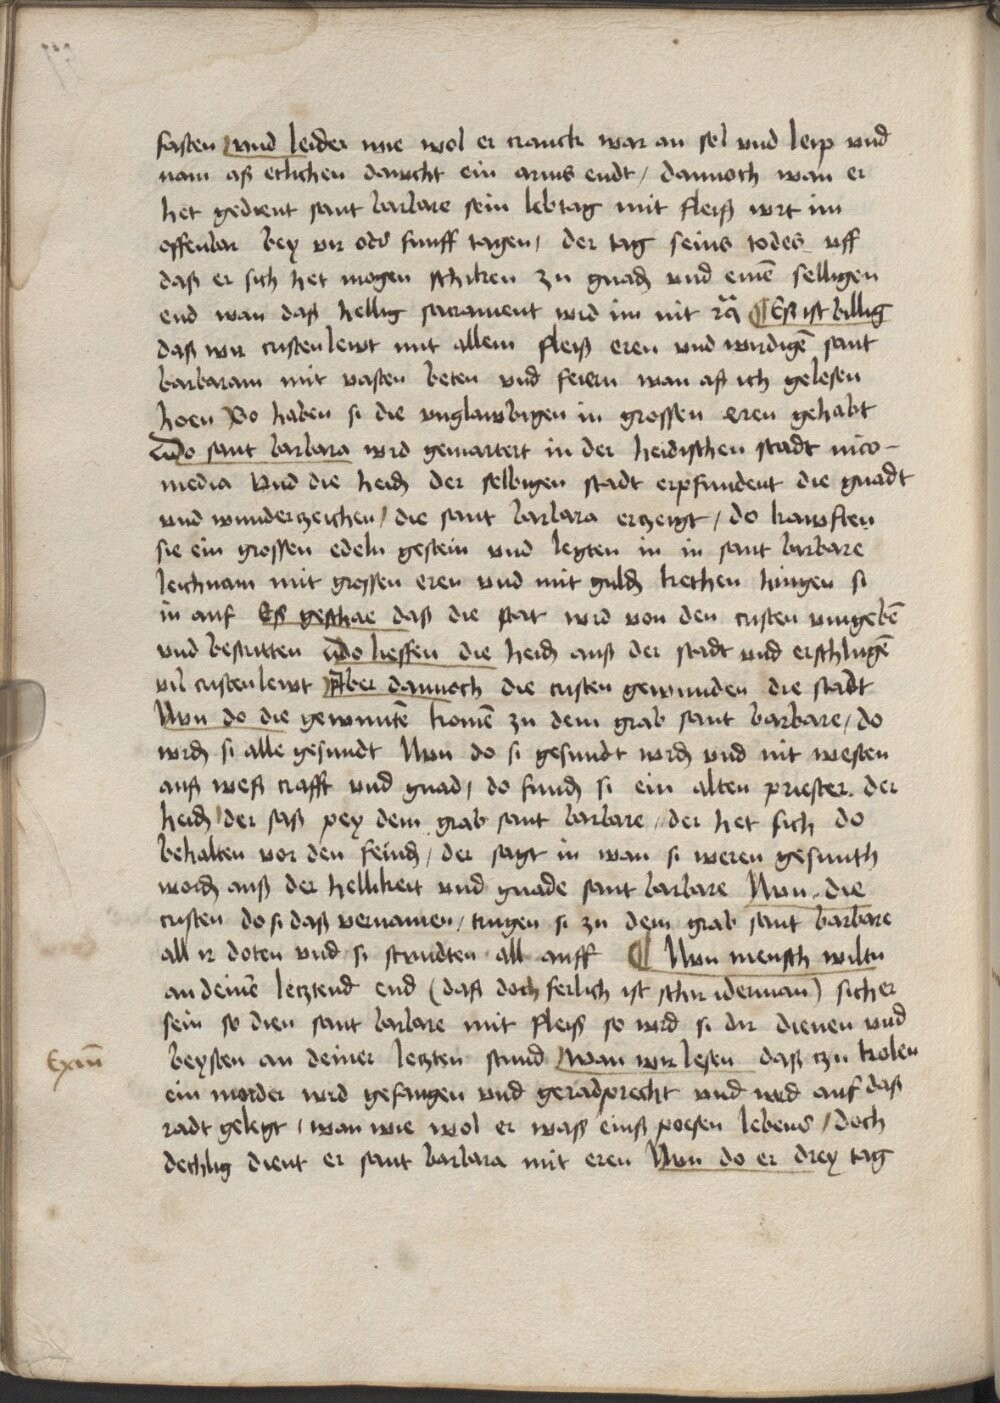 fasten vnd leider wie wol er cranck war an sel vnd leip vnd
nam aß etlichen dawcht ein arms endt / dannoch wan er
het gedient sant barbare sein lebtag mit fleiß wrt im
offenbar bey vir odº funff tagen / der tag seins todes vff
daß er sich het mogen schiken zu gnad vnd einē selligen
end wan daß hellig sacrament wrd im nit ¶ Eß ist billig
daß wir cristenlewt mit allem fleiß eren vnd wirdigē sant
barbaram mit vasten beten vnd feiern wan aß ich gelesen
So haben si die vnglawbigen in grossen eren gehabt
sant barbara wrd gemartert in der heidischen stadt nico-
media Vnd die heid der selbigen stadt erpfundent die gnadt
vnd wunderzeichen / die sant barbara erzeigt / do kawften
sie ein grossen edeln gestein vnd legten in in sant barbare
leichnam mit grossen eren vnd mit guld kethen hingen si
in auf Es geschae daß die stat wrd von den cristen vmgebē
vnd bestritten vdo lieffen die heid auß der stadt vnd erschlugē
vil cristenlewt Aber dannoch die cristen gewunnden die stadt
Nvn do die gewnntē komē zu dem grab sant barbare / do
wrd si alle gesundt Nvn do si gesundt wrd vnd nit westen
auß weß crafft vnd gnad / do fund si ein alten priester der
heid / der saß pey dem grab sant barbare / der het sich do
behalten vor den feind / der sagt in wan si weren gesunth
word auß der hellikeit vnd gnade sant barbare Nvn die
cristen do si daß vernamen / trugen si zu dem grab sant barbare
all ir doten vnd si stundten all auff ¶ Nvn mensch wiltu
an deinē letztend end (daß doch ferlich ist schir iderman) sicher
sein so dien sant barbare mit fleiß so wrd si dir dienen vnd
Exm̄
beysten an deiner letzten stund wan wir lesen daß tzu kolen
ein morder wrd gefangen vnd geradprecht vnd wrd auf daß
radt gelegt / wan wie wol er waß einß poesen lebens / doch
dechlig dient er sant barbara mit eren Nvn do er drey tag